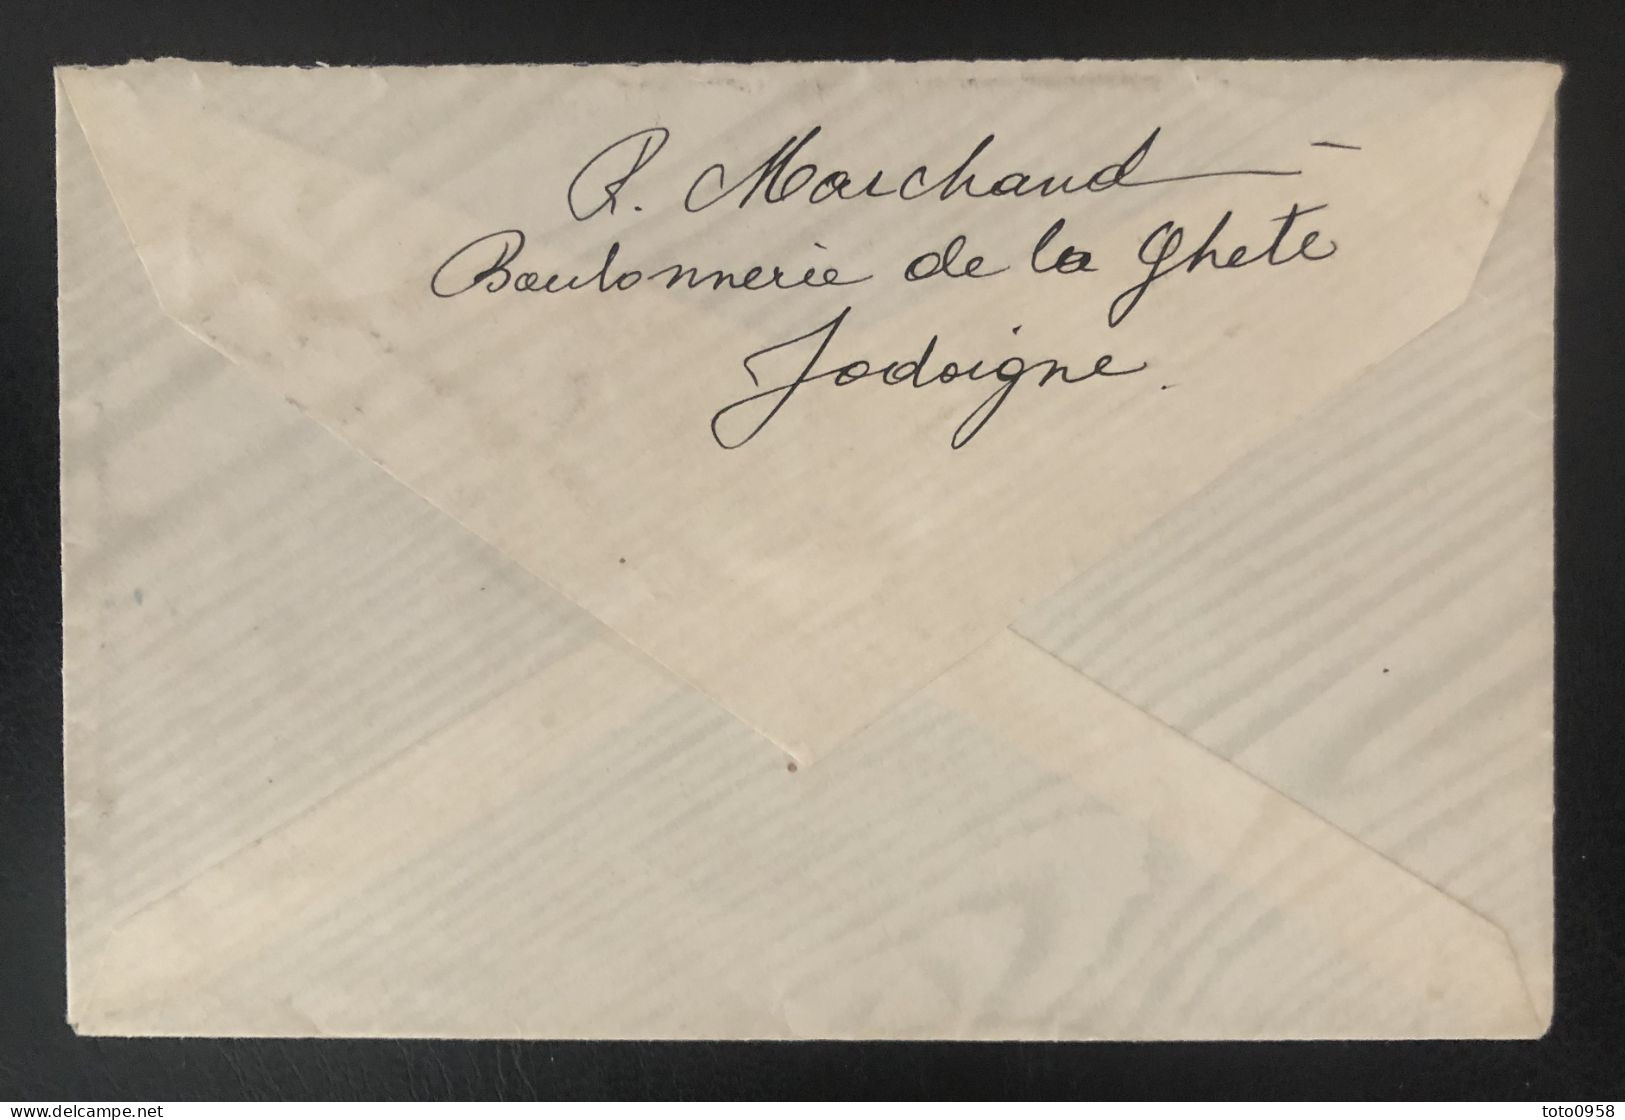 R. Marchand -
Boulonnerie de la Ghete
Jodoigne.
www.delcampe.net
toto0958